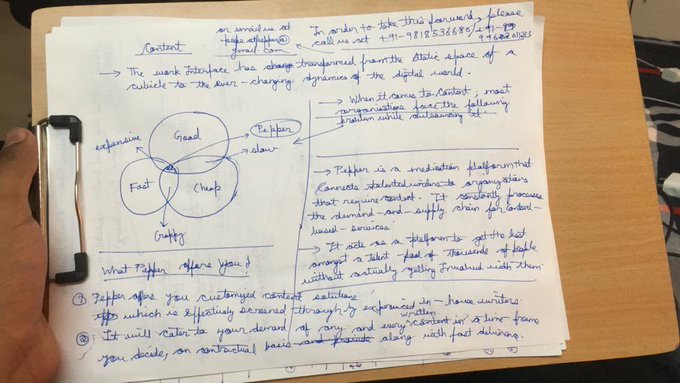 or email us at
pepe
gmail.com
In order to take this forward, please
call us at +91-9818536680/+91-
Content
→ The work Interface has transformed from the static space of a
cubicle to the ever-changing dynamics of the digital world.
→ When it comes to content, most
organisations face the following
problem while outsourcing it.
Good
Pepper
expensive
slow
Fast
Cheap
Crappy
→ Pepper is a mediation platform that
Connects talented writers to organizations
that require content. It constantly processes
the demand-and-supply chain for content-
based-services
→ It acts as a platform to get the best
amongst a talent-pool of thousands of people
without actually getting Involved with them
What Pepper offers you
① Pepper offers you customized content solutions
which is effectively screened through by experienced in-house writers
② It will cater to your demand of any and every written content in a time-frame
you decide, on contractual basis along with fast delivery.